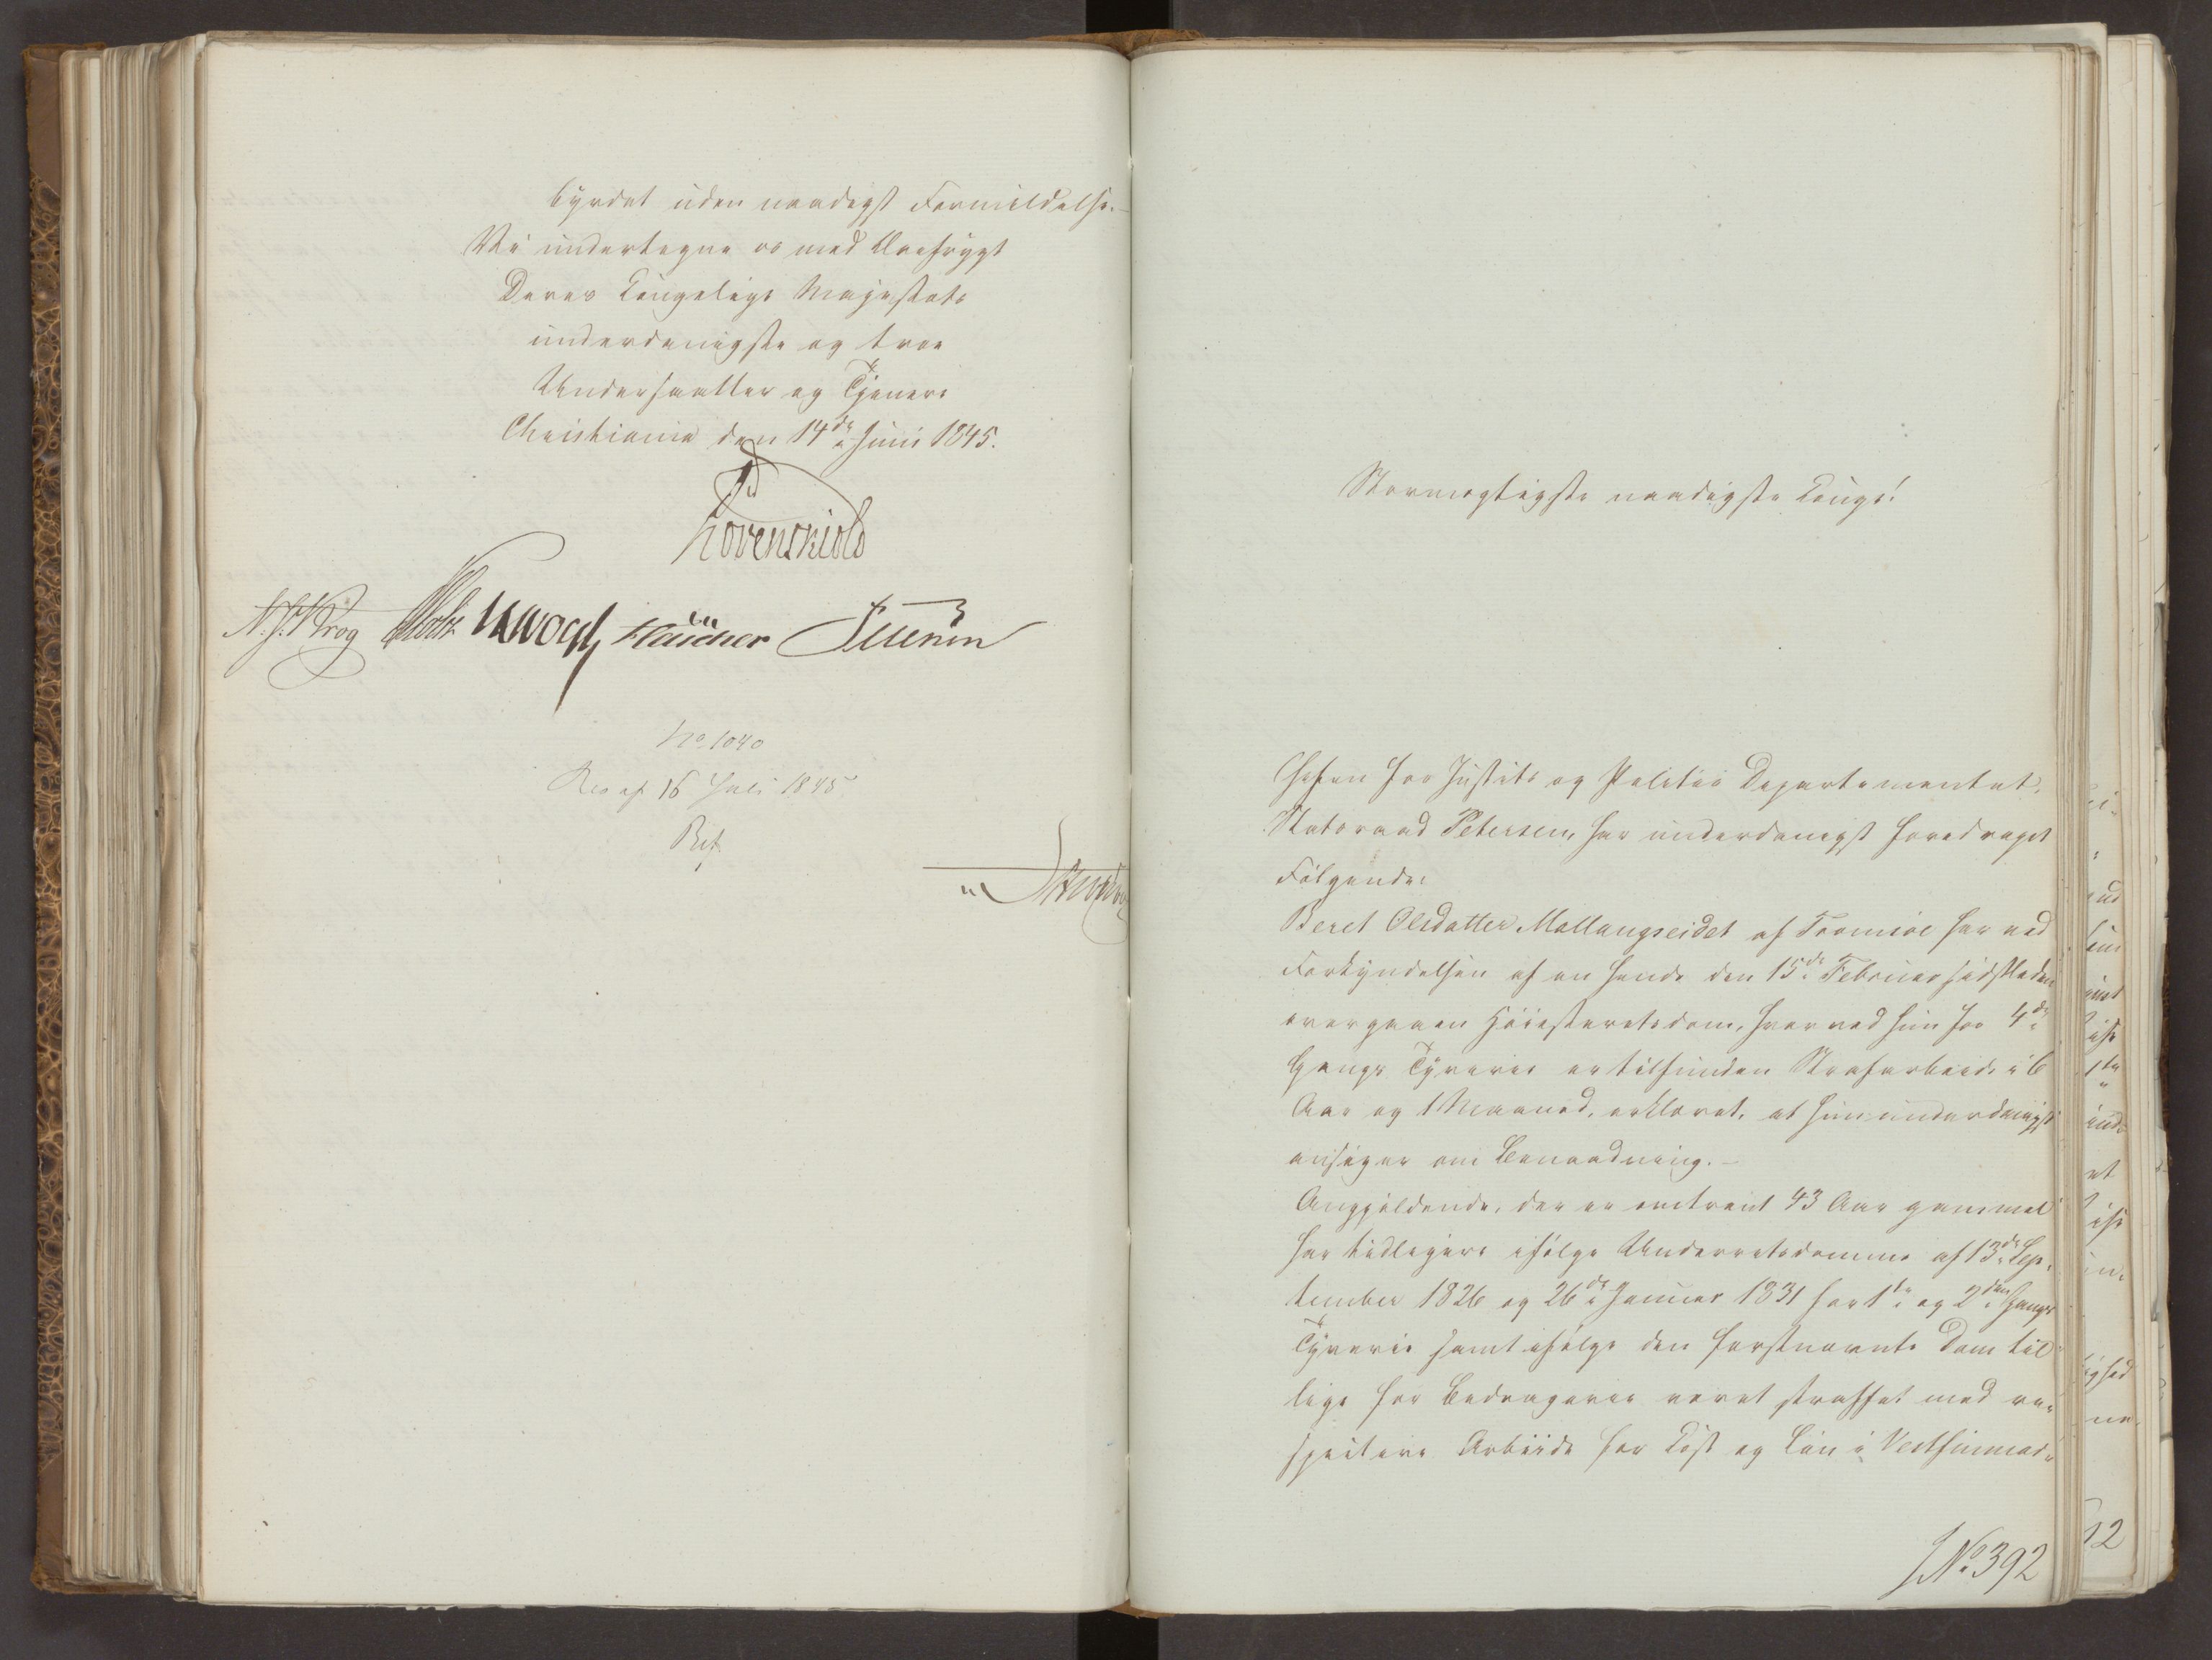 byrdet uden naadigst Formildelse.
Vi undertegne os med Ærefrygt
Deres Kongelige Majestæts
underdanigste og troe
Undersaatter og Tjenere
Christiania den 14de Juni 1845.
Løvenskiold
N. J. Krog Motz
Petersen
No 1040
Res af 16 Juli 1845
Ref
Stormægtigste naadigste Konge!
Chefen for Justits og Politie Departementet,
Statsraad Petersen, har underdanigst foredraget
Følgende:
Beret Olsdatter Mallangseidet af Tromsöe har ved
Forkyndelsen af en hende den 15de Februar sidstleden
overgaaen Höiesteretsdom, hvorved hun for 4de
Gangs Tyverie er tilfunden Strafarbeide i 6
Aar og 1 Maaned, erklæret, at hun underdanigst
ansøger om Benaadning. -
Angjældende, der er omtrent 43 Aar gammel
har tidligere ifølge Underretsdomme af 13de Sep-
tember 1826 og 26de Januar 1831 for 1ste og 2den Gangs
Tyverie samt ifølge den førstnævnte Dom til
lige for Bedragerie været straffet med re-
spective Arbeide for Kost og Løn i Vestfinmar-
J No 392